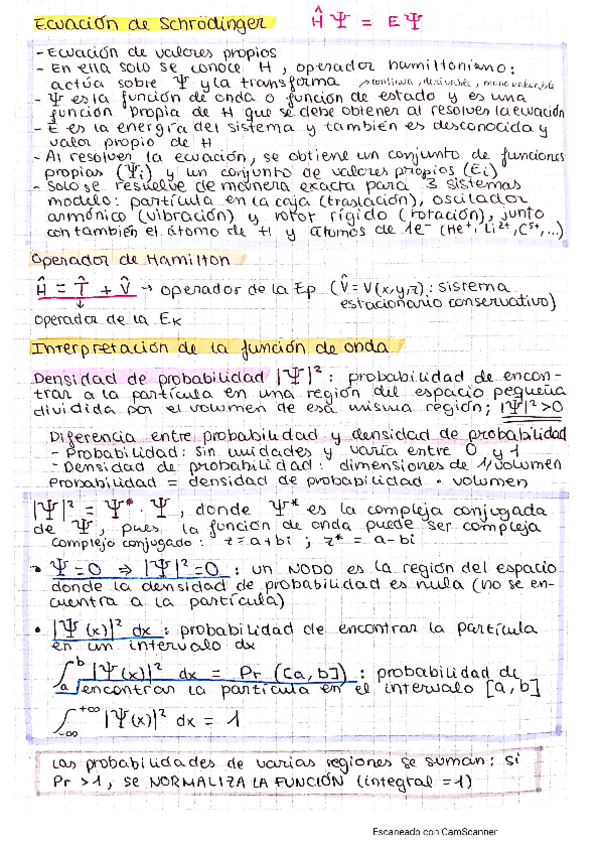 Ecuación de Schrödinger ĤΨ = EΨ
- Ecuación de valores propios
- En ella solo se conoce H, operador hamiltoniano:
actúa sobre Ψ y la transforma → continua, derivable,
- Ψ es la función de onda o función de estado y es una
función propia de H que se debe obtener al resolver la ecuación
- E es la energía del sistema y también es desconocida y
valor propio de H
- Al resolver la ecuación, se obtiene un conjunto de funciones
propias (Ψi) y un conjunto de valores propios (Ei)
- Solo se resuelve de manera exacta para 3 sistemas
modelo: partícula en la caja (traslación), oscilador
armónico (vibración) y rotor rígido (rotación), junto
con también el átomo de H y átomos de 1e⁻ (He⁺, Li²⁺, C⁵⁺,...)
Operador de Hamilton
Ĥ = T̂ + V̂ → operador de la Ep (V̂ = V(x,y,z): sistema
estacionario conservativo)
↓
operador de la Ek
Interpretación de la función de onda
Densidad de probabilidad |Ψ|²: probabilidad de encon-
trar a la partícula en una región del espacio pequeña
dividida por el volumen de esa misma región; |Ψ|²>0
Diferencia entre probabilidad y densidad de probabilidad
- Probabilidad: sin unidades y varía entre 0 y 1
- Densidad de probabilidad: dimensiones de 1/volumen
Probabilidad = densidad de probabilidad · volumen
|Ψ|² = Ψ* · Ψ, donde Ψ* es la compleja conjugada
de Ψ, pues la función de onda puede ser compleja
complejo conjugado: z = a+bi ; z* = a-bi
• Ψ=0 ⇒ |Ψ|²=0: un NODO es la región del espacio
donde la densidad de probabilidad es nula (no se en-
cuentra a la partícula)
• |Ψ(x)|² dx: probabilidad de encontrar la partícula
en un intervalo dx
∫ₐᵇ |Ψ(x)|² dx = Pr ([a,b]): probabilidad de
encontrar la partícula en el intervalo [a,b]
∫₋∞⁺∞ |Ψ(x)|² dx = 1
Las probabilidades de varias regiones se suman: si
Pr >1, se NORMALIZA LA FUNCIÓN (integral =1)
Escaneado con CamScanner